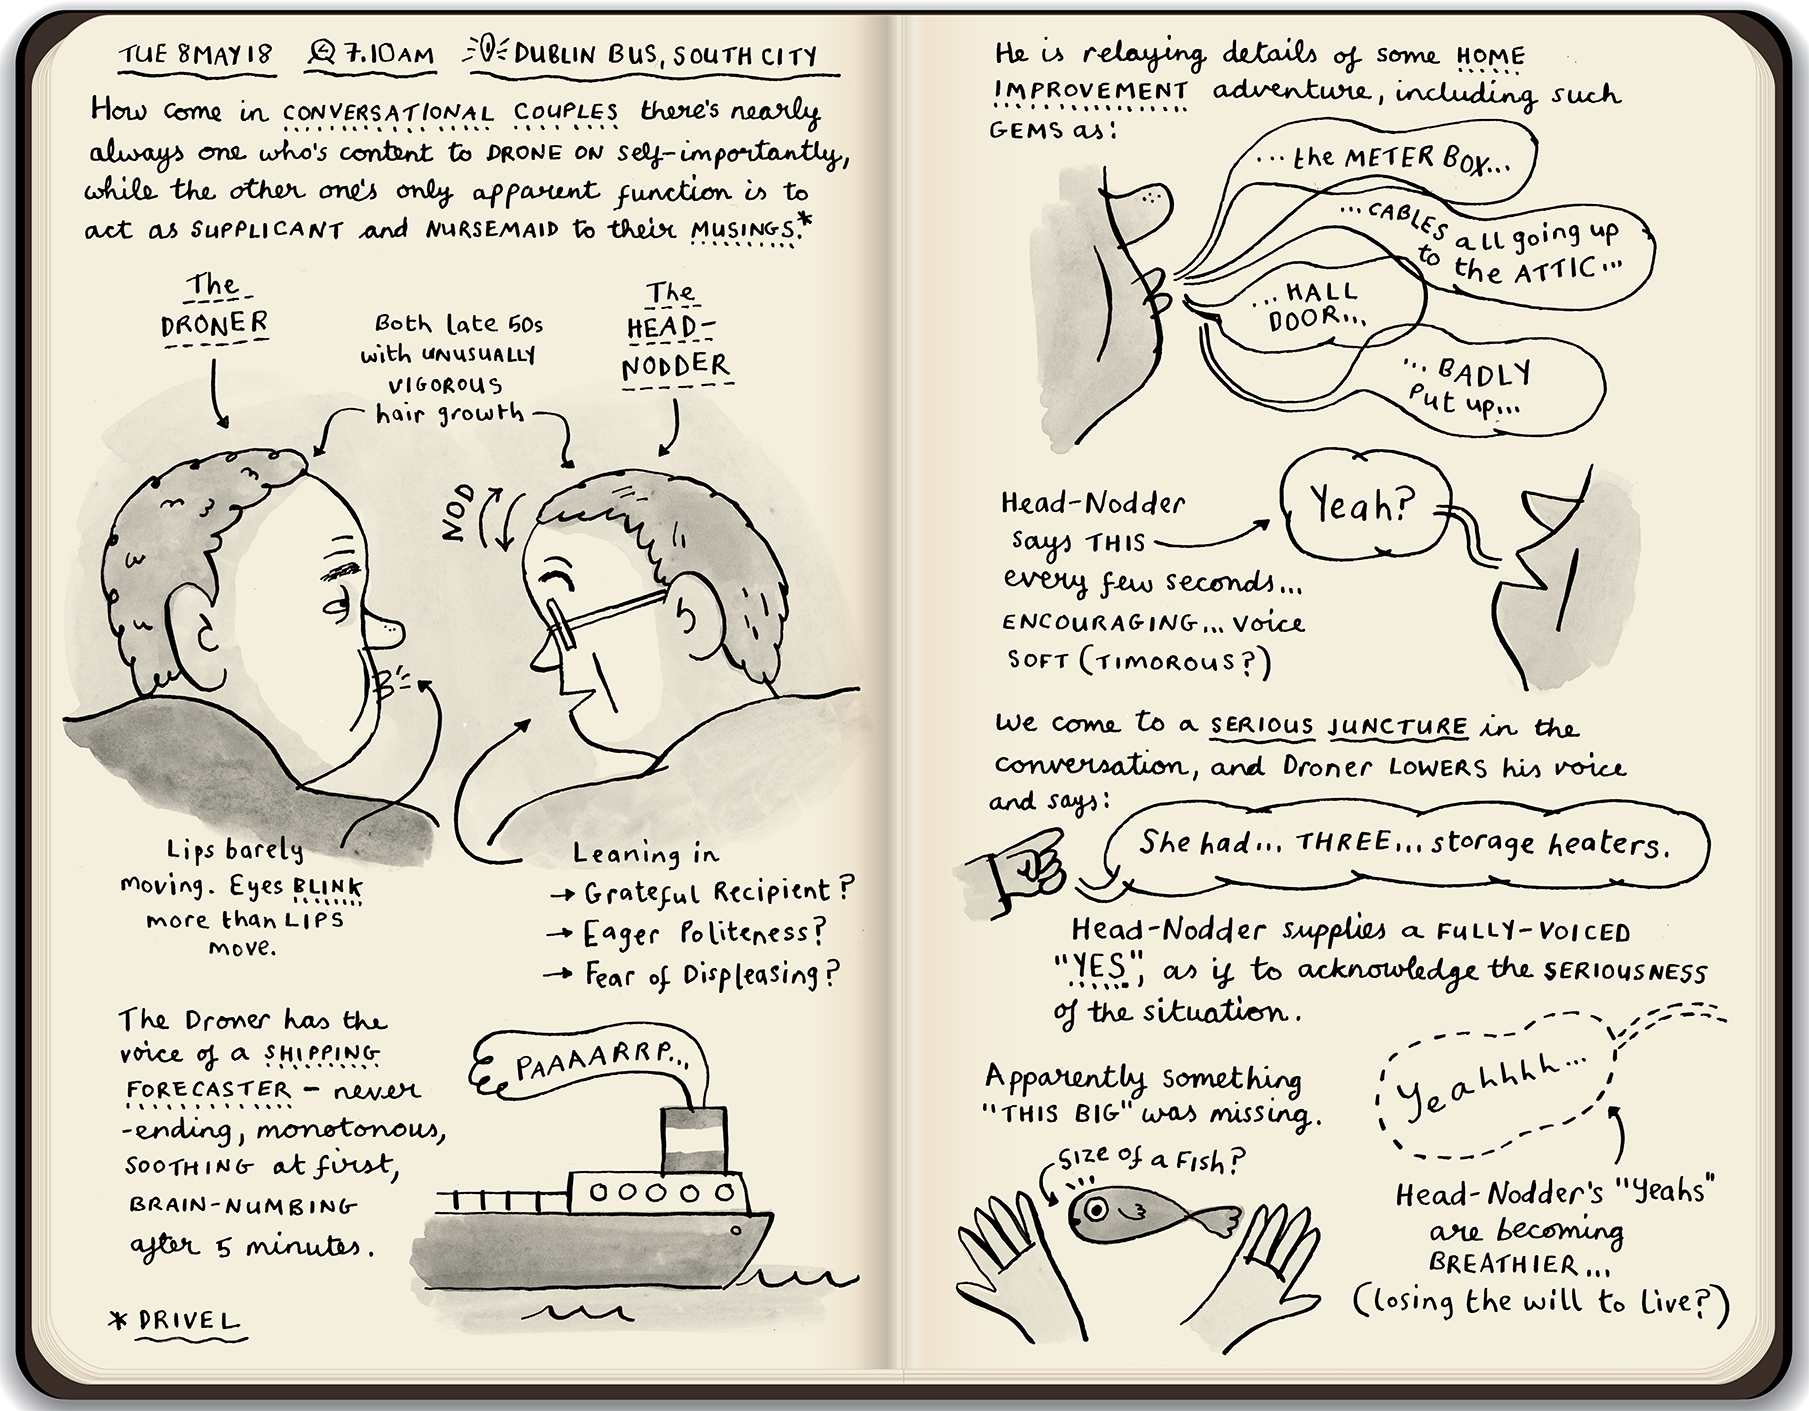 TUE 8 MAY 18 7.10AM DUBLIN BUS, SOUTH CITY
How come in CONVERSATIONAL COUPLES there's nearly
always one who's content to DRONE ON self-importantly,
while the other one's only apparent function is to
act as SUPPLICANT and NURSEMAID to their MUSINGS.*
The
DRONER
Both late 50s
with UNUSUALLY
VIGOROUS
hair growth
The
HEAD-
NODDER
NOD
Lips barely
moving. Eyes BLINK
more than LIPS
move.
Leaning in
→ Grateful Recipient?
→ Eager Politeness?
→ Fear of Displeasing?
The Droner has the
voice of a SHIPPING
FORECASTER – never
-ending, monotonous,
SOOTHING at first,
BRAIN-NUMBING
after 5 minutes.
PAAAARRP...
* DRIVEL
He is relaying details of some HOME
IMPROVEMENT adventure, including such
GEMS as:
...the METER BOX...
...CABLES all going up
to the ATTIC...
...HALL
DOOR...
...BADLY
put up...
Head-Nodder
says THIS
every few seconds...
ENCOURAGING... voice
SOFT (TIMOROUS?)
Yeah?
We come to a SERIOUS JUNCTURE in the
conversation, and Droner LOWERS his voice
and says:
She had... THREE... storage heaters.
Head-Nodder supplies a FULLY-VOICED
"YES", as if to acknowledge the SERIOUSNESS
of the situation.
Apparently something
"THIS BIG" was missing.
Size of a Fish?
Yeahhhh...
Head-Nodder's "Yeahs"
are becoming
BREATHIER...
(losing the will to live?)